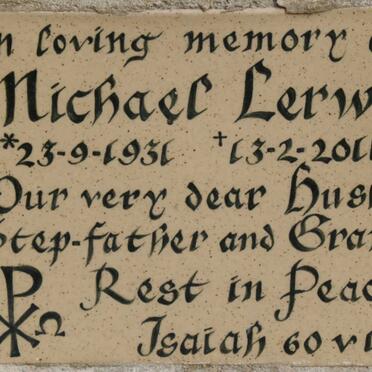 n loving memory o
Michael Lerw
*23-9-1931 †13-2-2011
Our very dear Husb
Step-father and Gran
Rest in Peac
☧ Ω Isaiah 60 v 1